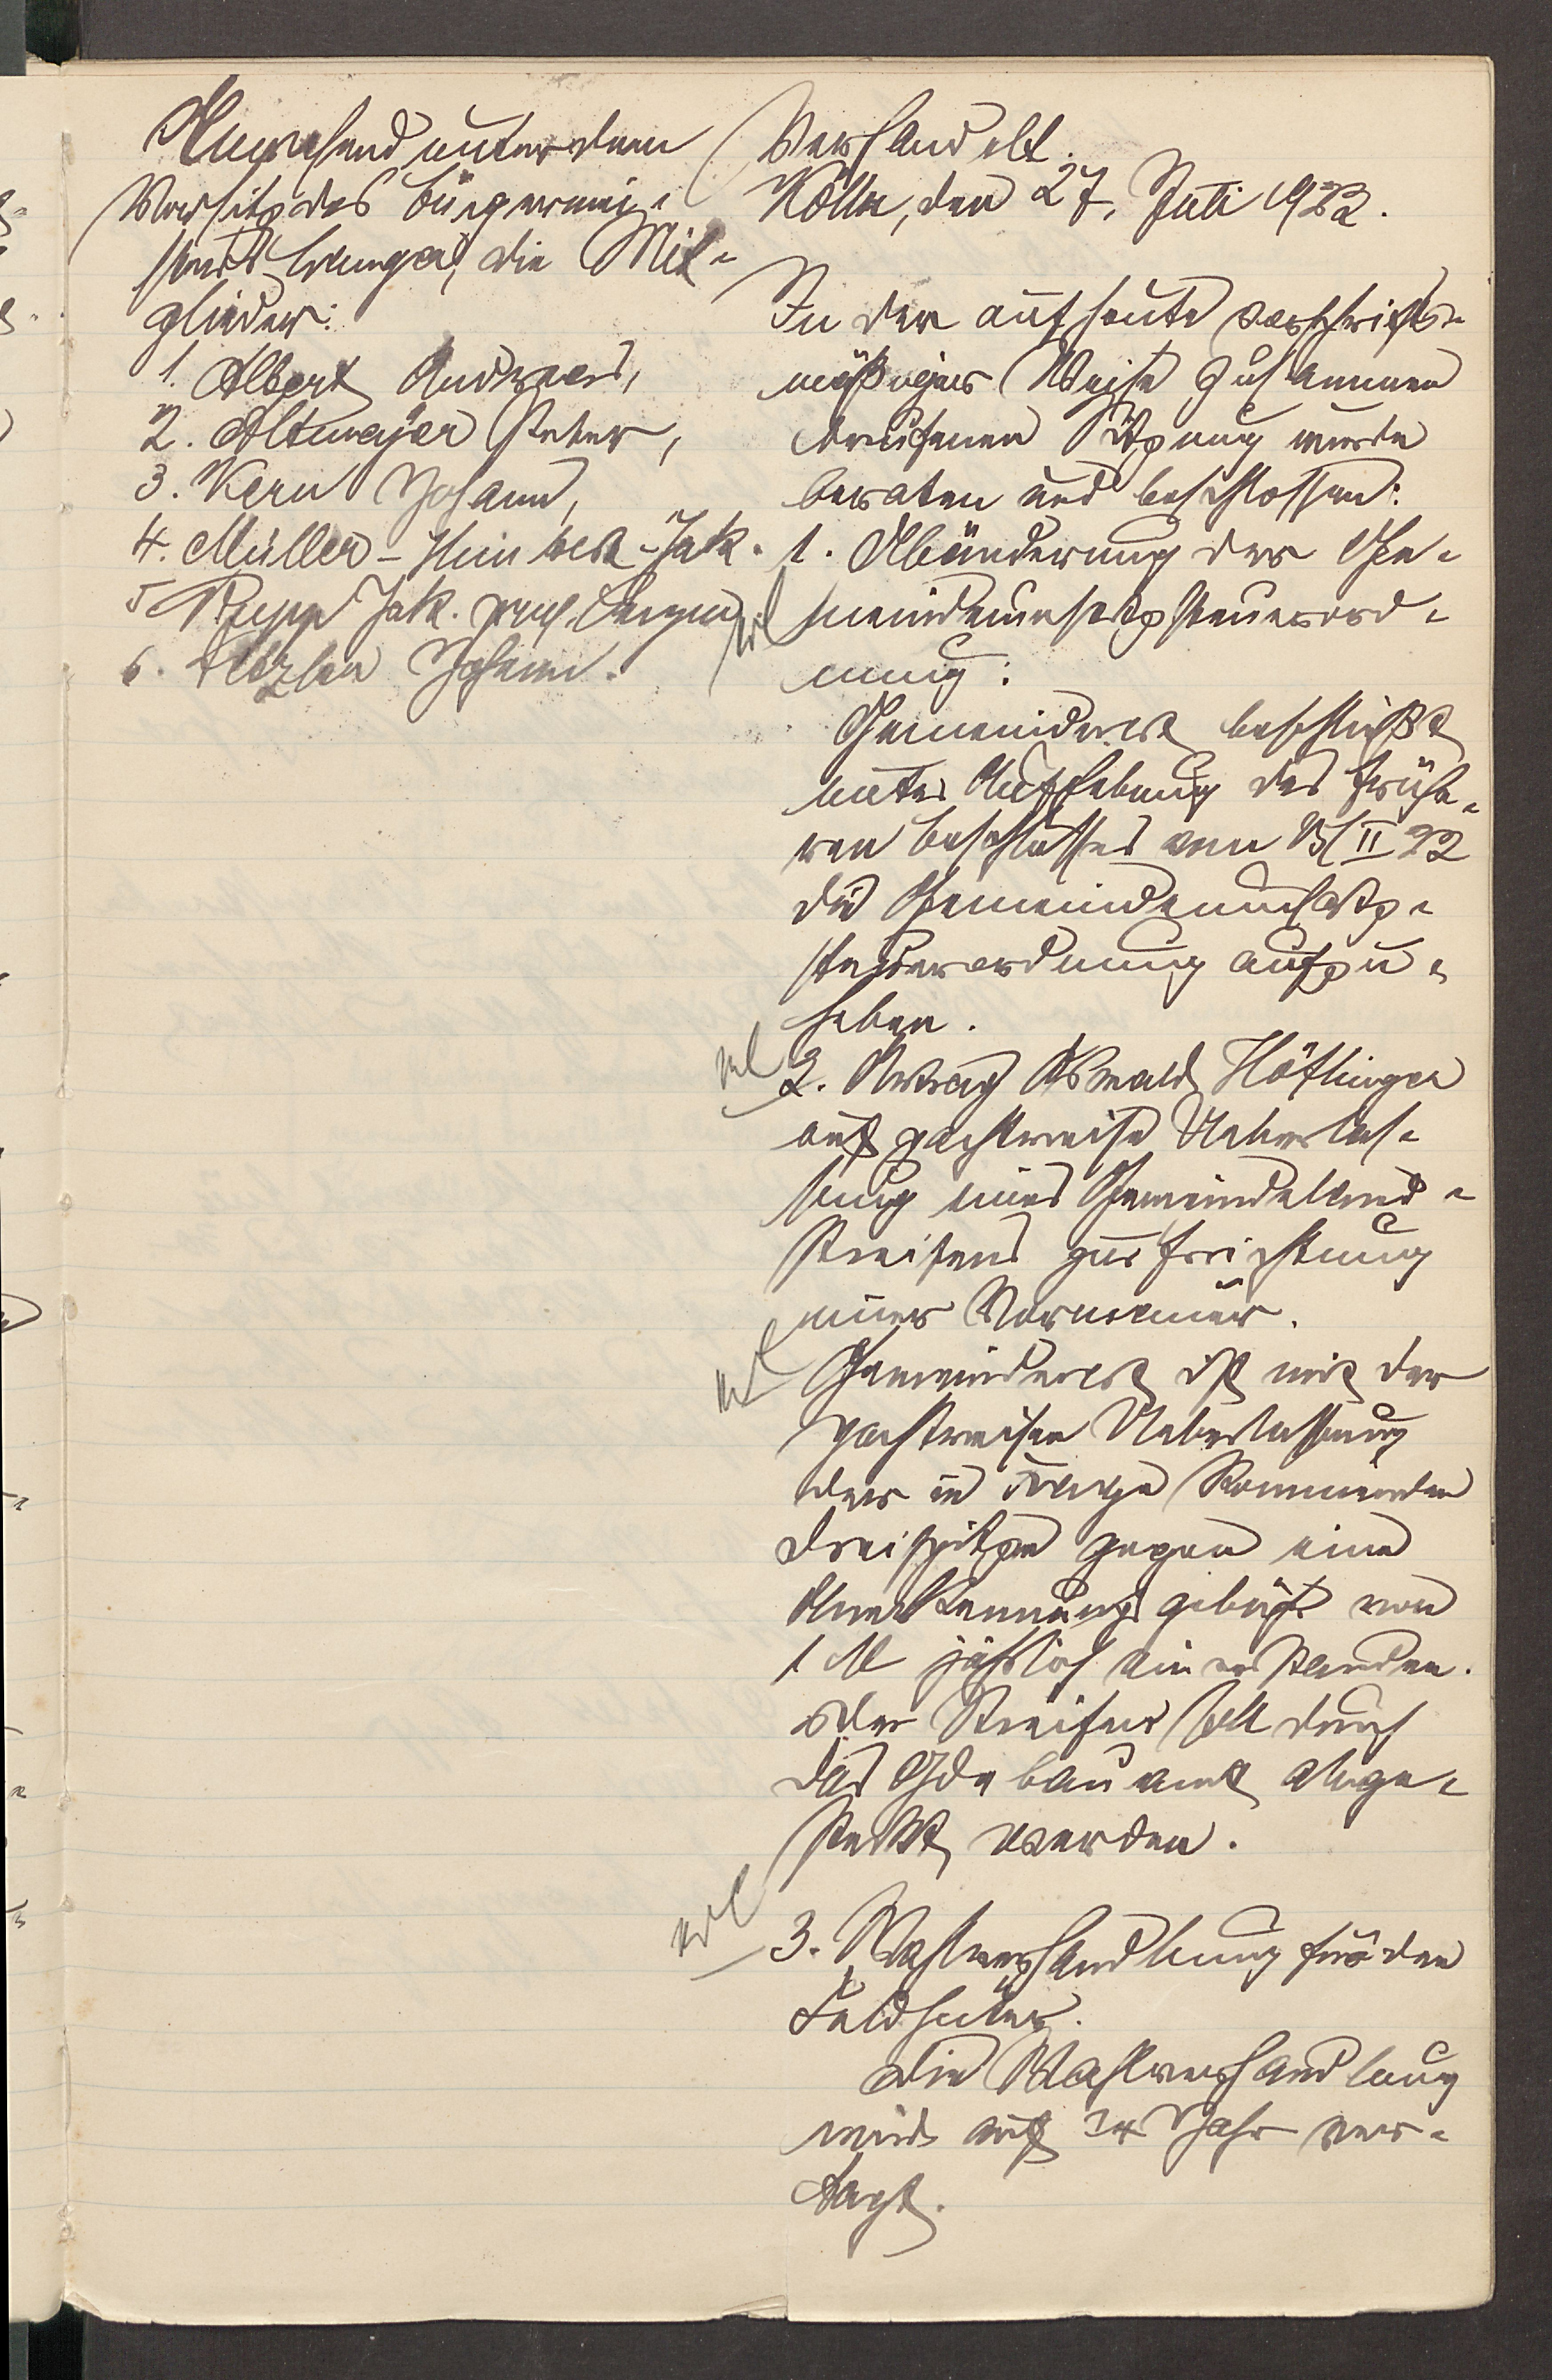 Anwesend unter dem
Vorsitz des Bürgermei-
sters die Mit-
glieder:
1. Albert Andreas,
2. Altmayer Peter,
3. Kern Johann,
4. Müller - Jak.
5 Rupp Jak.
6. Johann.
Verhandelt.
Kölln, den 27. Juli 1922.
In der auf heute vorschrifts-
mäßiger Weise zusammen
berufenen Sitzung wurde
beraten und beschlossen:
1. Abänderung der Ge-
meindeumsatzsteuerord-
nung:
Gemeinderat beschließt
unter Aufhebung des frühe-
ren Beschlusses vom II 22
die Gemeindeumsatz-
steuerordnung aufzu-
heben.
2. Antrag Oswald Höftinger
auf pachtweise Ueberlas-
sung eines Gemeindeland-
Streifens zur Errichtung
einer Vormauer.
Gemeinderat ist mit der
pachtweisen Ueberlassung
der in Frage kommenden
Dreispitze gegen eine
Anerkennungsgebühr von
1 M jährlich einverstanden.
Der Streifen soll durch
das Gde bauamt abge-
steckt werden.
3. Wahlverhandlung für den
Feldhüter.
Die Wahlverhandlung
wird auf Jahr ver-
tagt.